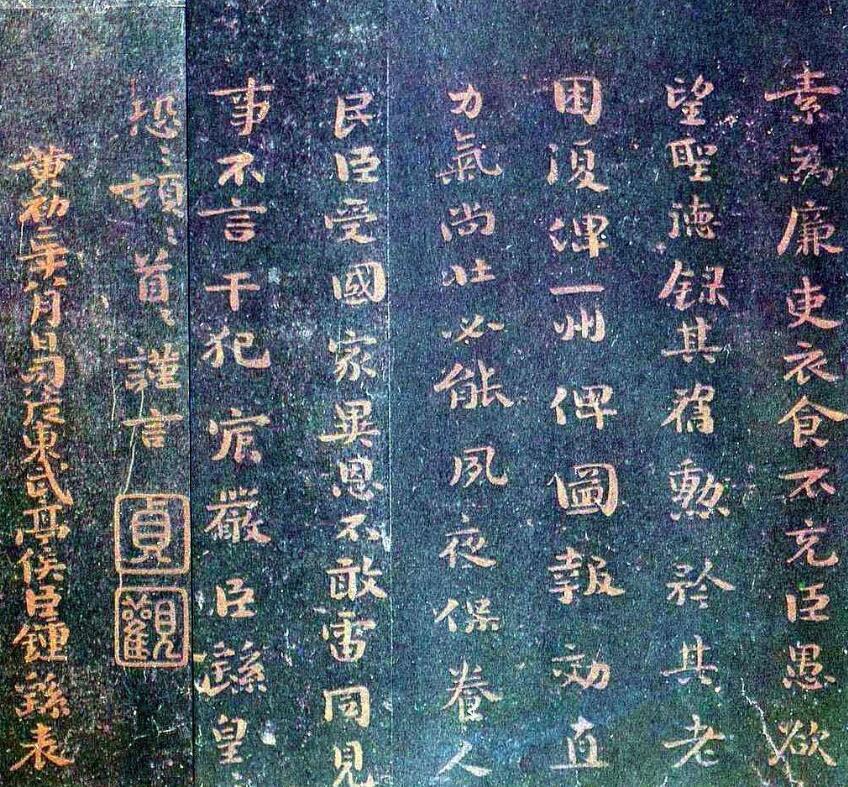 素為廉吏衣食不充臣愚欲
望聖德録其舊勲矜其老
困復俾一州俾圖報効直
力氣尚壯必能夙夜保養人
民臣受國家異恩不敢雷同見
事不言干犯宸嚴臣繇皇〻
恐〻頓〻首〻謹言
貞觀
黃初二年八月日司徒東武亭侯臣鍾繇表